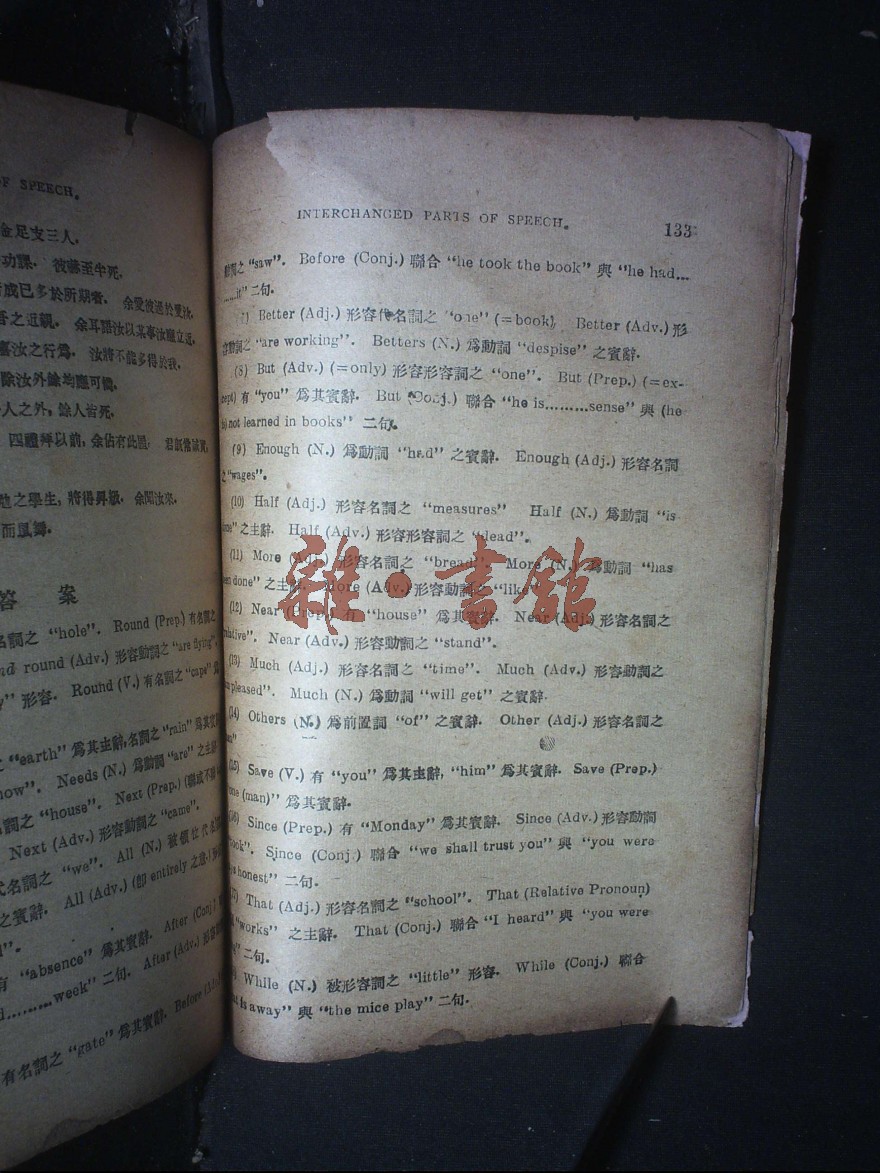 OF SPEECH.
金足支三人.
功課. 彼嚇至半死.
成已多於所期者.
之近親. 余耳語汝以某事汝應立近.
汝之行爲. 汝將不能多得於我.
除汝外餘均應可憐.
人之外, 餘人皆死.
四禮拜以前, 余佔有此匣.
之學生, 將得昇級. 余聞汝來.
答 案
名詞之 "hole". Round (Prep.) 有名詞之
round (Adv.) 形容動詞之 "are flying".
形容. Round (V.) 有名詞之 "cape" 爲
"earth" 爲其主辭, 名詞 "rain" 爲其賓
now". Needs (N.) 爲動詞 "are" 之主
名詞之 "house". Next (Prep.)
Next (Adv.) 形容動詞之 "came".
代名詞之 "we". All (N.) 被
之賓辭. All (Adv.) (卽 entirely 之意)
有 "absence" 爲其賓辭. After (Conj.)
.........week" 二句. After (Adv.) 形容
有名詞之 "gate" 爲其賓辭. Before
INTERCHANGED PARTS OF SPEECH.
133
動詞之 "saw". Before (Conj.) 聯合 "he took the book" 與 "he had...
......it" 二句.
Better (Adj.) 形容代名詞之 "one" (=book). Better (Adv.) 形
容動詞之 "are working". Betters (N.) 爲動詞 "despise" 之賓辭.
(8) But (Adv.) (=only) 形容形容詞之 "one". But (Prep.) (=ex-
cept) 有 "you" 爲其賓辭. But (Conj.) 聯合 "he is.........sense" 與 (he
is) not learned in books" 二句.
(9) Enough (N.) 爲動詞 "had" 之賓辭. Enough (Adj.) 形容名詞
之 "wages".
(10) Half (Adj.) 形容名詞之 "measures" Half (N.) 爲動詞 "is
done" 之主辭. Half (Adv.) 形容形容詞之 "dead".
(11) More (Adj.) 形容名詞之 "bread". More (N.) 爲動詞 "has
been done" 之主辭. More (Adv.) 形容動詞之 "like".
(12) Near (Prep.) 有 "house" 爲其賓辭. Near (Adj.) 形容名詞之
"relative". Near (Adv.) 形容動詞之 "stand".
(13) Much (Adj.) 形容名詞之 "time". Much (Adv.) 形容動詞之
pleased". Much (N.) 爲動詞 "will get" 之賓辭.
(14) Others (N.) 爲前置詞 "of" 之賓辭. Other (Adj.) 形容名詞之
(15) Save (V.) 有 "you" 爲其主辭, "him" 爲其賓辭. Save (Prep.)
one (man)" 爲其賓辭.
(16) Since (Prep.) 有 "Monday" 爲其賓辭. Since (Adv.) 形容動詞
Since (Conj.) 聯合 "we shall trust you" 與 "you were
honest" 二句.
(17) That (Adj.) 形容名詞之 "school". That (Relative Pronoun)
"works" 之主辭. That (Conj.) 聯合 "I heard" 與 "you were
二句.
While (N.) 被形容詞之 "little" 形容. While (Conj.) 聯合
is away" 與 "the mice play" 二句.
雜·書館